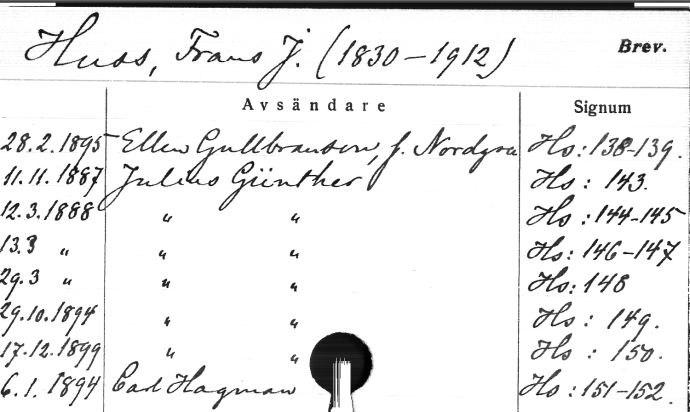 Huss, Frans J. (1830-1912) Brev.
Avsändare Signum
28.2.1895 Ellen Gulbranson, f. Nordgren Hs: 138-139.
11.11.1887 Julius Günther Hs: 143.
12.3.1888 " " Hs: 144-145
13.3 " " " Hs: 146-147
29.3 " " " Hs: 148
29.10.1894 " " Hs: 149.
17.12.1899 " " Hs: 150.
6.1.1894 Carl Hagman Hs: 151-152.